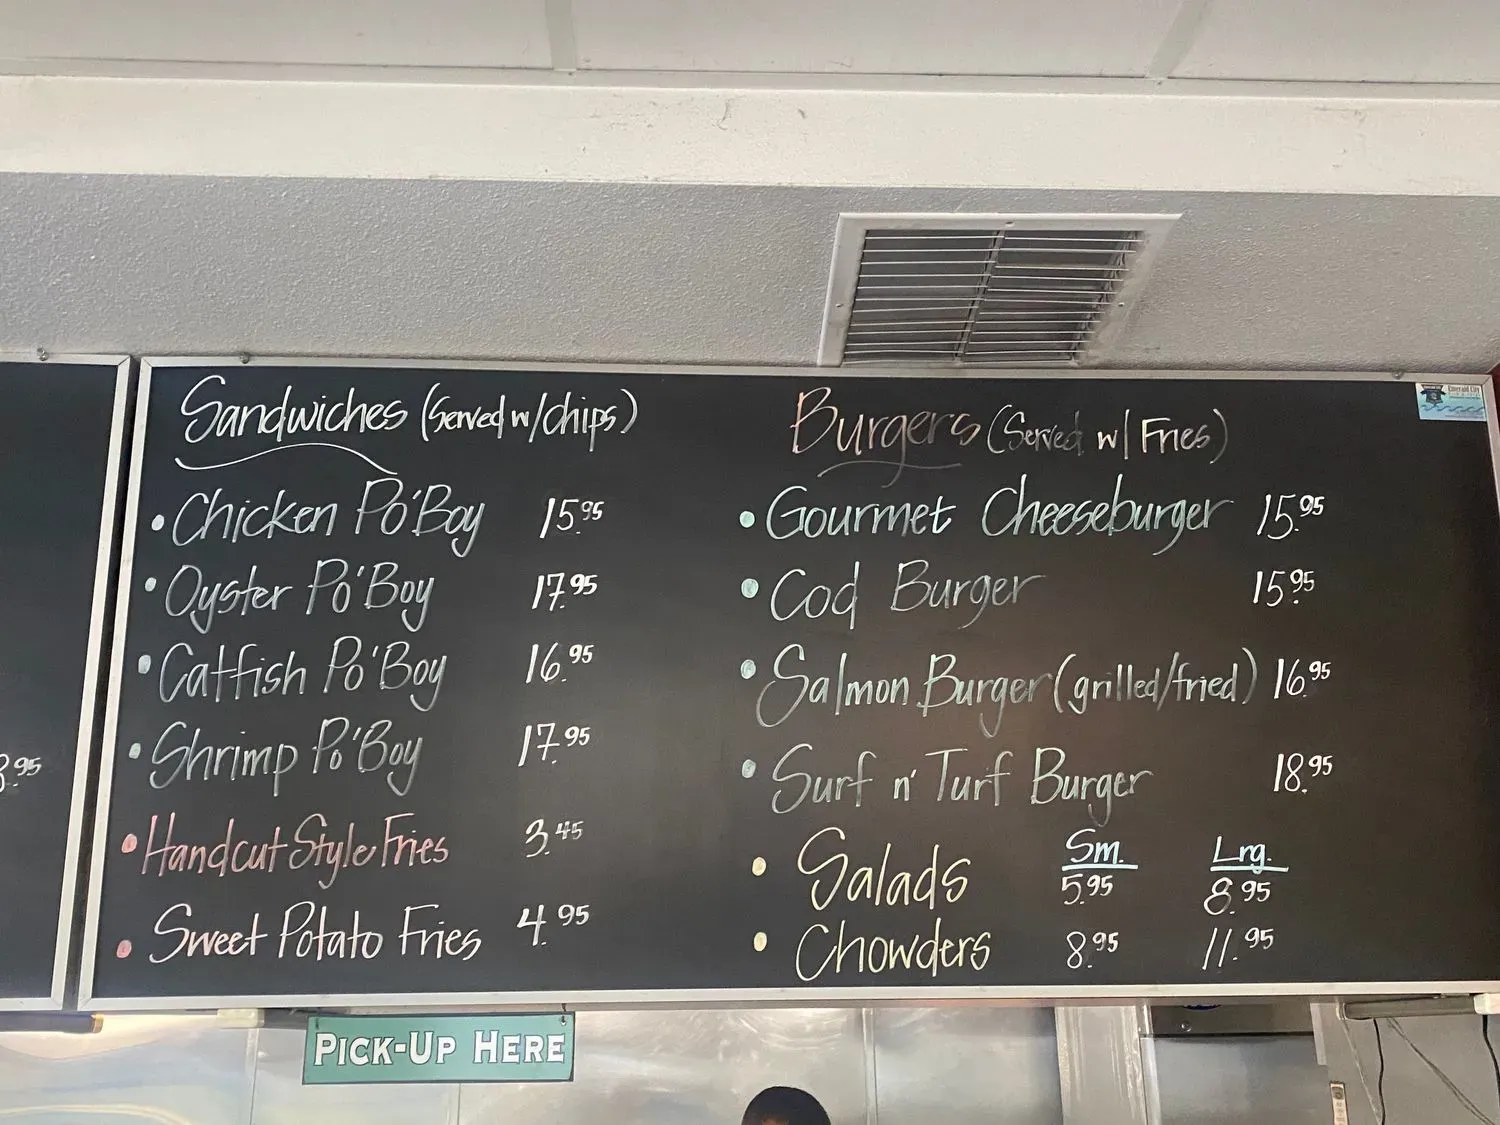 Sandwiches (Served w/chips)
• Chicken Po'Boy 15.95
• Oyster Po'Boy 17.95
• Catfish Po'Boy 16.95
• Shrimp Po'Boy 17.95
• Handcut Style Fries 3.45
• Sweet Potato Fries 4.95
Burgers (Served w/ Fries)
• Gourmet Cheeseburger 15.95
• Cod Burger 15.95
• Salmon Burger (grilled/fried) 16.95
• Surf n' Turf Burger 18.95
Sm. Lrg.
• Salads 5.95 8.95
• Chowders 8.95 11.95
.95
Emerald City
PICK-UP HERE